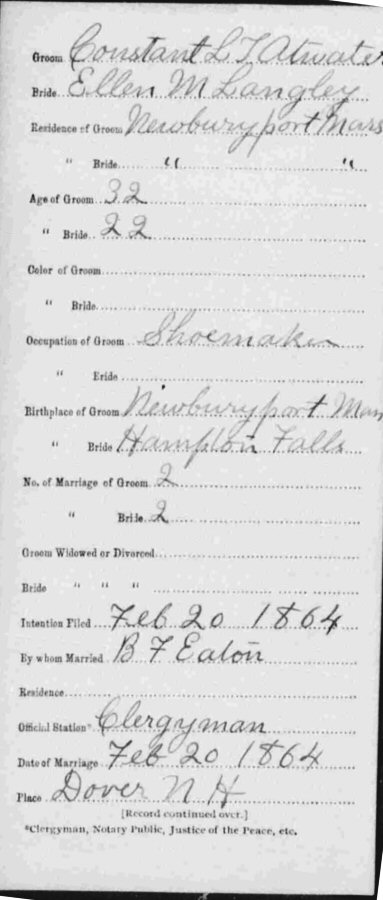 Groom Constant L T Atwater
Bride Ellen M Langley
Residence of Groom Newburyport Mass
" Bride " "
Age of Groom 32
" Bride 22
Color of Groom
" Bride
Occupation of Groom Shoemaker
" Bride
Birthplace of Groom Newburyport Mass
" Bride Hampton Falls
No. of Marriage of Groom 2
" Bride 2
Groom Widowed or Divorced
Bride " " "
Intention Filed Feb 20 1864
By whom Married B F Eaton
Residence
Official Station* Clergyman
Date of Marriage Feb 20 1864
Place Dover N H
[Record continued over.]
*Clergyman, Notary Public, Justice of the Peace, etc.